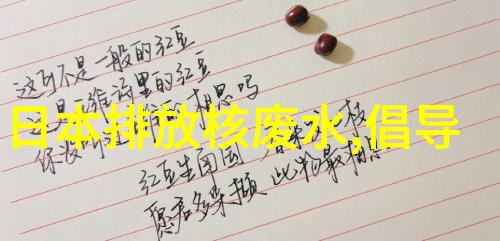 这可不是一般的红豆
这是 里的红豆
你没听 相思吗
日本排放核废水,倡导
红豆生南国 春来 枝
愿君多采撷 此物最相思